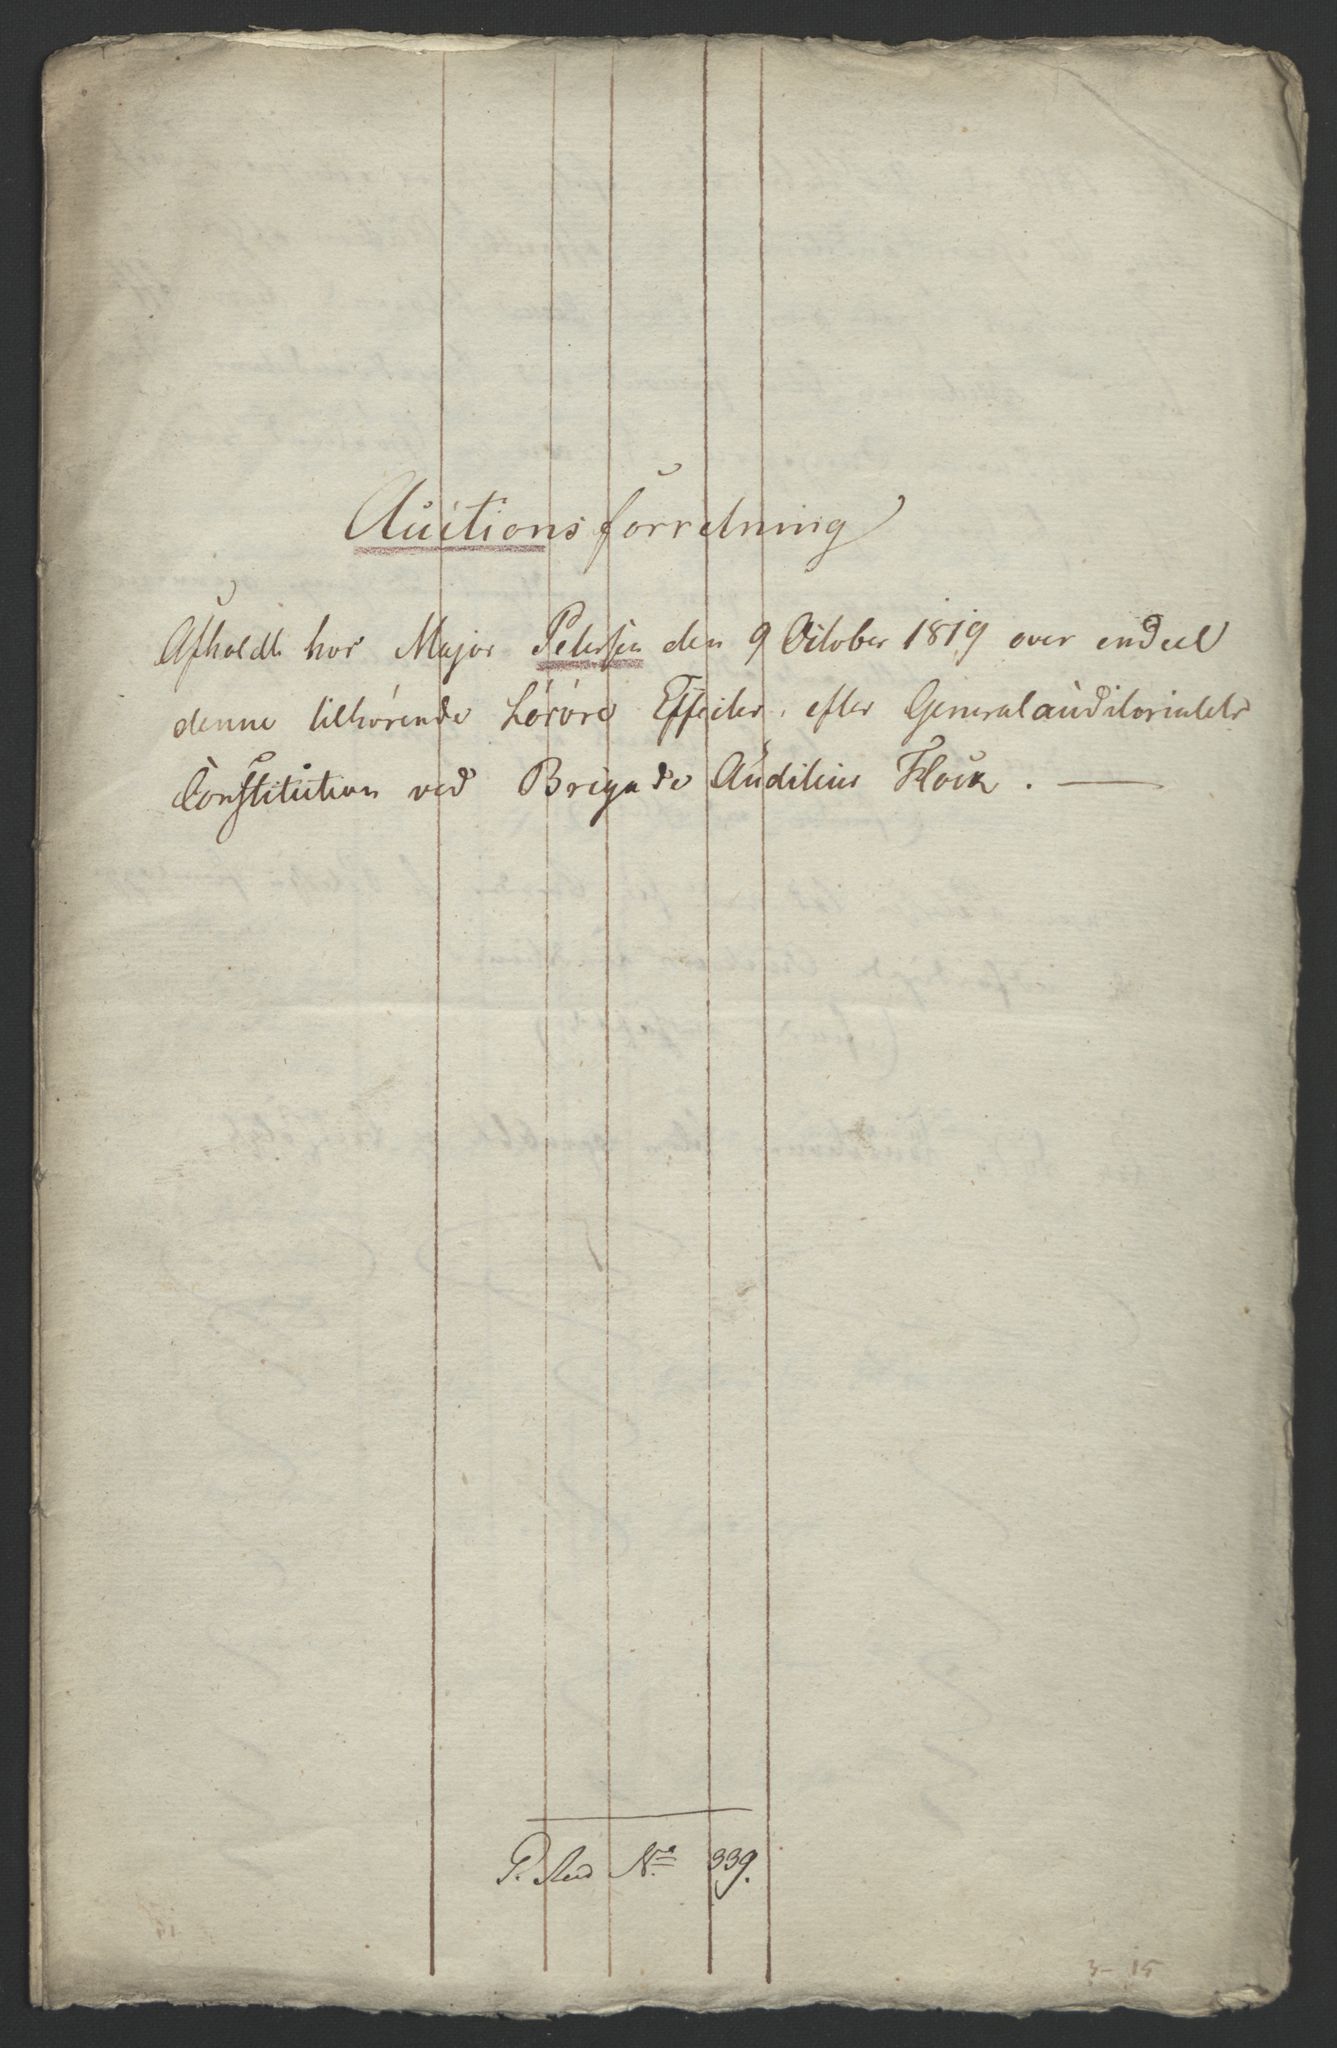 Auctionsforretning
Afholdt hos Major Petersen den 9 October 1819 over endeel
denne tilhørende Løsøre Effecter, efter Generalauditoriatets
Constitution ved Brigade Auditeur Flock. —
P. No 339.
3 - 15